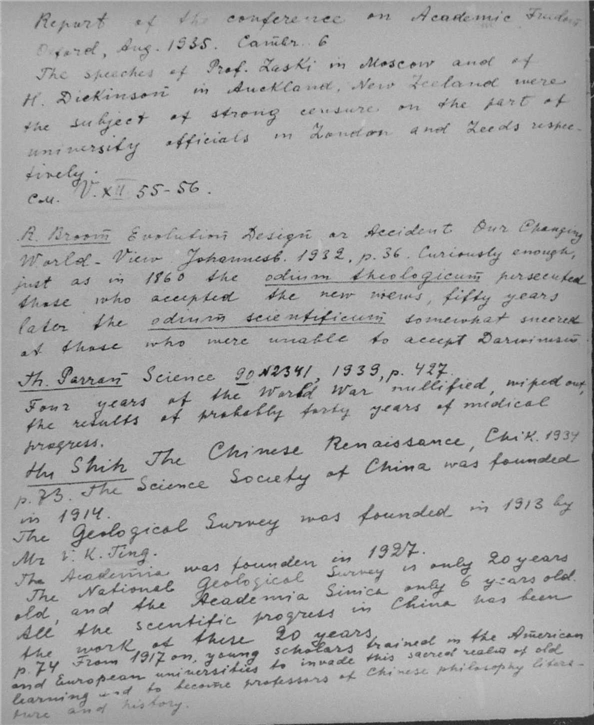 Report of the conference on Academic Freedom
Oxford, Aug. 1935. Cambr. 6
The speeches of Prof. Laski in Moscow and of
H. Dickinson in Auckland, New Zeeland were
the subject of strong censure on the part of
university officials in London and Leeds respec-
tively.
см. V. XII. 55-56.
R. Broom Evolution Design or Accident Our Changing
World-View Johannesb. 1932, p. 36. Curiously enough,
just as in 1860 the odium theologicum persecuted
those who accepted the new views, fifty years
later the odium scientificum somewhat sneered
at those who were unable to accept Darwinism
Th. Parran Science 90 N2341, 1939, p. 427.
Four years of the World War nullified, wiped out,
the results of probably forty years of medical
progress.
Hu Shih The Chinese Renaissance, Chik. 1934
p. 73. The Science Society of China was founded
in 1914.
The Geological Survey was founded in 1913 by
Mr V. K. Ting.
The Academia was founden in 1927.
The National Geological Survey is only 20 years
old, and the Academia Sinica only 6 years old.
All the scentific progress in China has been
the work of these 20 years.
p. 74 From 1917 on, young scholars trained in the American
and European universities to invade this sacred realm of old
learning and to become professors of Chinese philosophy litera-
ture and history.